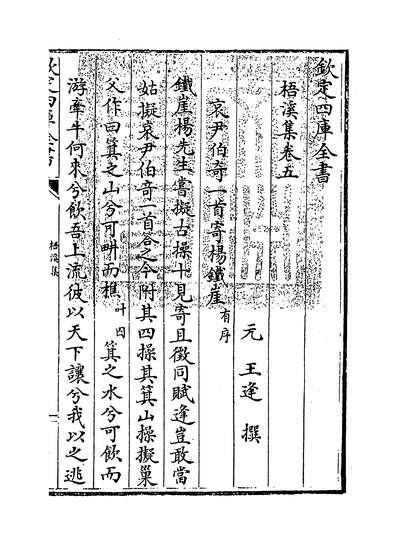 欽定四庫全書
梧溪集卷五
元 王逢 撰
哀尹伯奇一首寄楊鐵崖有序
鐵崖楊先生書擬古操十見寄且徵同賦逢豈敢當
姑擬哀尹伯奇一首答之今附其四操其箕山操擬巢
父作曰箕之山兮可畊而樵叶四箕之水兮可飲而
游牽牛何來兮飲吾上流彼以天下讓兮我以之逃
欽定四庫全書
梧溪集